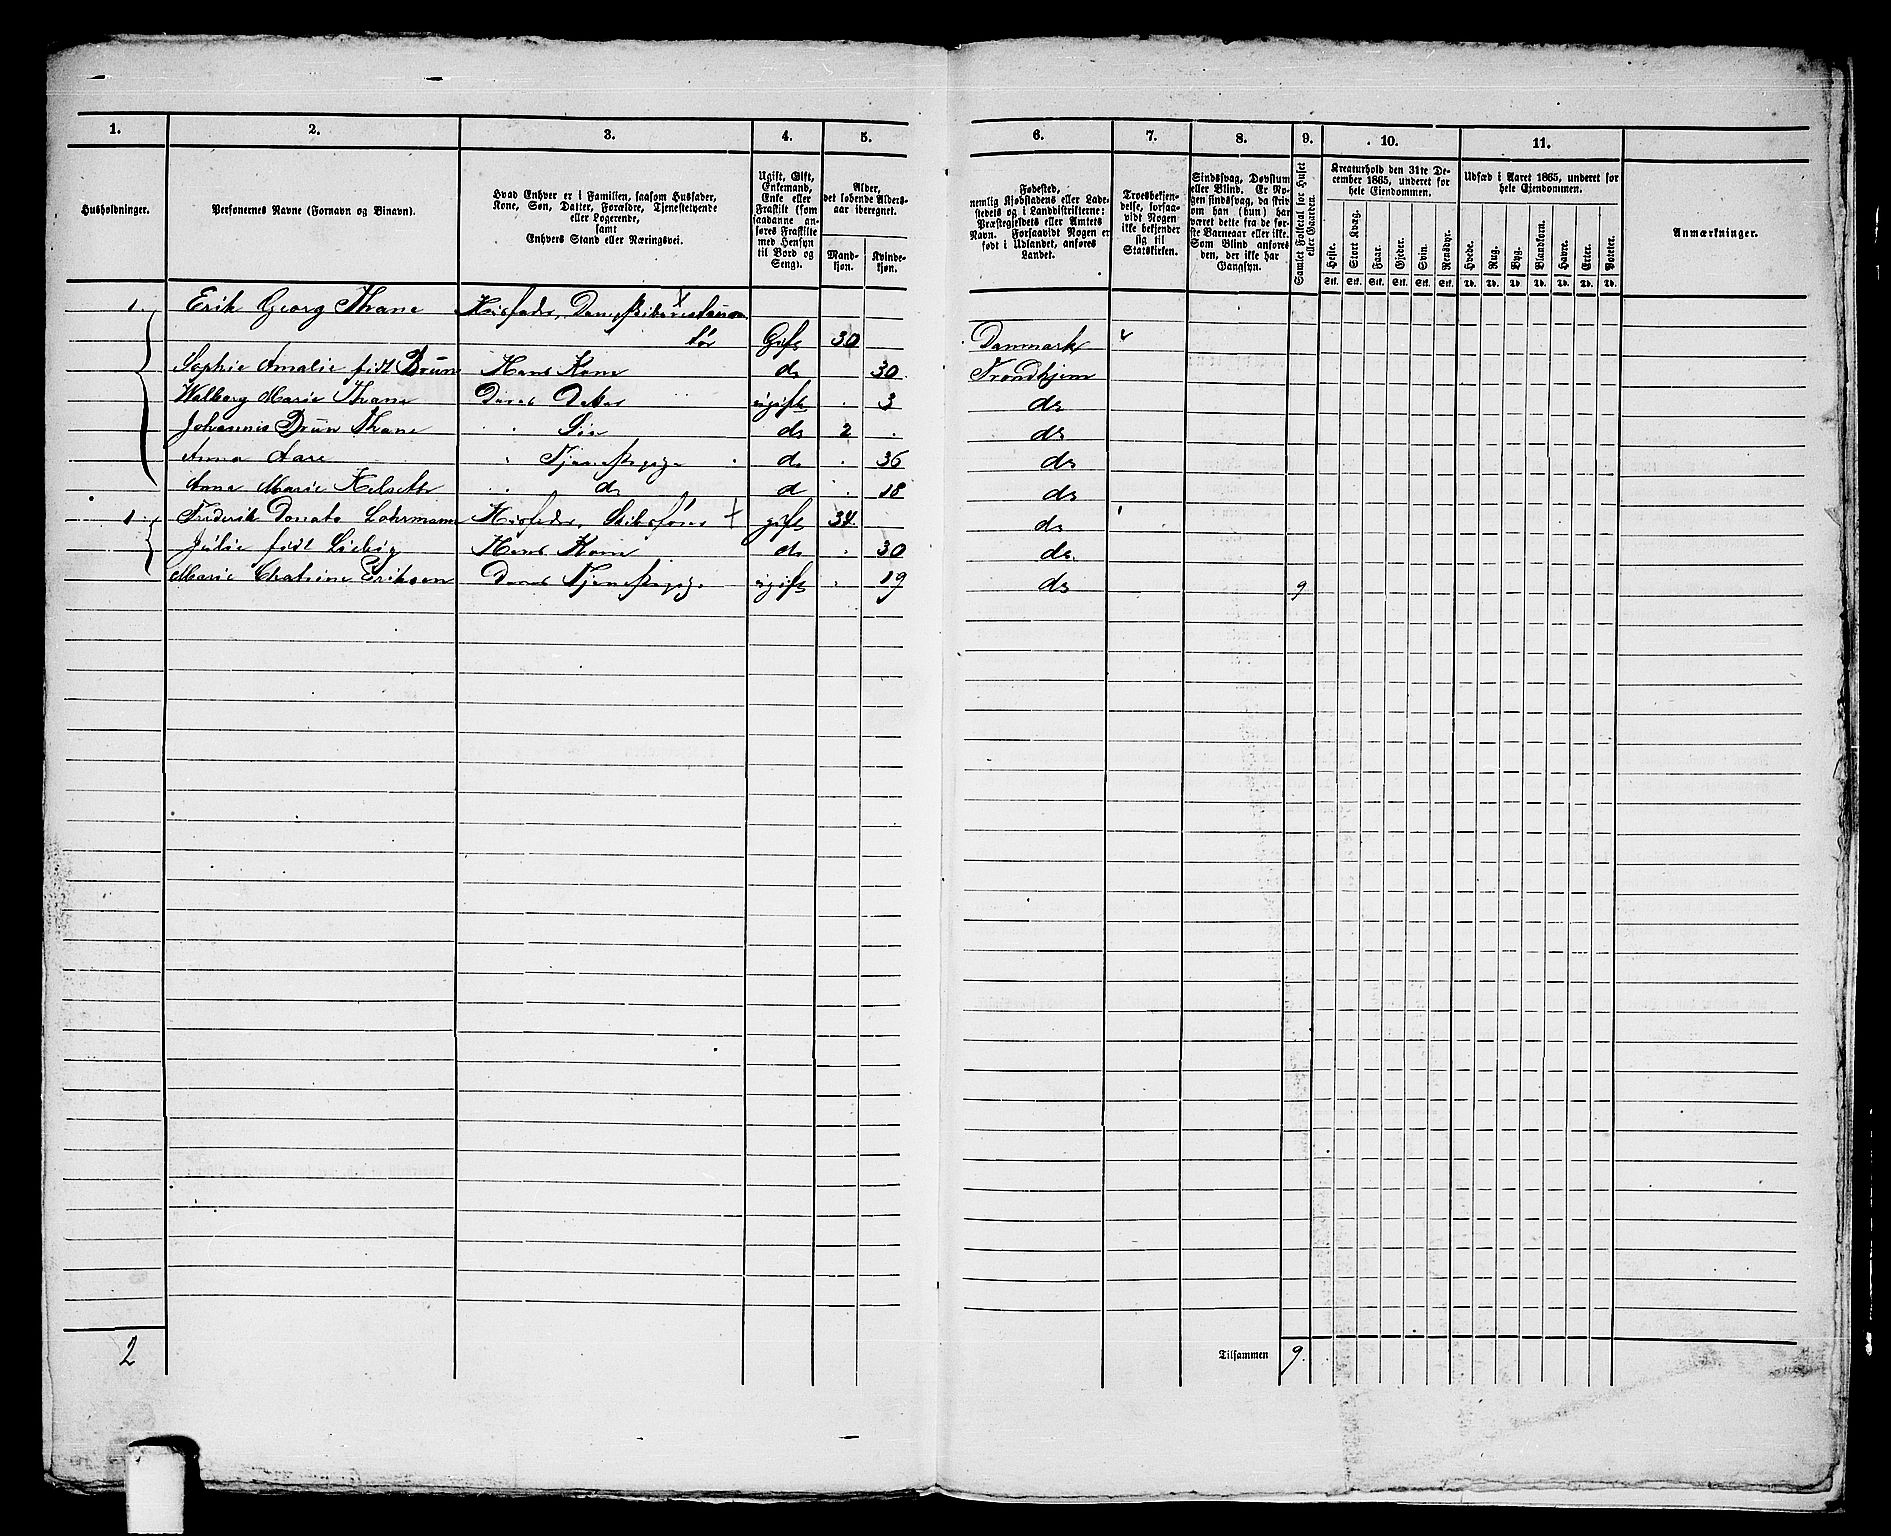 1. 2. 3. 4. 5. 6. 7. 8. 9. 10. 11.
Husholdninger.
Personernes Navne (Fornavn og Binavn).
Hvad Enhver er i Familien, saasom Husfader,
Kone, Søn, Datter, Forældre, Tjenestetyende
eller Logerende,
samt
Enhvers Stand eller Næringsvei.
Ugift, Gift,
Enkemand,
Enke eller
Fraskilt (som
saadanne an-
føres Fraskilte
med Hensyn
til Bord og
Seng).
Alder,
det løbende Alders-
aar iberegnet.
Mand-
kjøn.
Kvinde-
kjøn.
Fødested,
nemlig Kjøbstadens eller Lade-
stedets og i Landdistrikterne:
Præstegjeldets eller Amtets
Navn. Forsaavidt Nogen er
født i Udlandet, anføres
Landet.
Troesbekjen-
delse, forsaa-
vidt Nogen
ikke bekjender
sig til
Statskirken.
Sindssvag, Døvstum
eller Blind. Er No-
gen sindssvag, da skriv
om han (hun) har
været dette fra de før-
ste Barneaar eller ikke.
Som Blind anføres
den, der ikke har
Gangsyn.
Samlet Folketal for Huset
eller Gaarden.
Kreaturhold den 31te De-
cember 1865, underet for
hele Eiendommen.
Heste. Stort Kvæg. Faar. Gjeder. Svin. Rensdyr.
Stk. Stk. Stk. Stk. Stk. Stk.
Udsæd i Aaret 1865, underet for
hele Eiendommen.
Hvede. Rug. Byg. Blandkorn. Havre. Erter. Poteter.
Td. Td. Td. Td. Td. Td. Td.
Anmærkninger.
1. Erik Georg Thane Husfader,
tør Gift 30 Danmark
Sophie Amalie født Brun Hans Kone do 30. Trondhjem
Walborg Marie Thane Deres Datter ugift . 3 do
Johannes Brun Thane " Søn do 2 . do
Anna Aare " Tjenestepige do . 36 do
Anne Marie Kelseth " do do . 18 do
1. Frederik Donato Lohrmann Husfader, gift 34. do
Julie født Liebig Hans Kone do . 30 do.
Marie Chatrine Eriksen Deres Tjenestepige ugift . 19 do 9
2 Tilsammen 9.